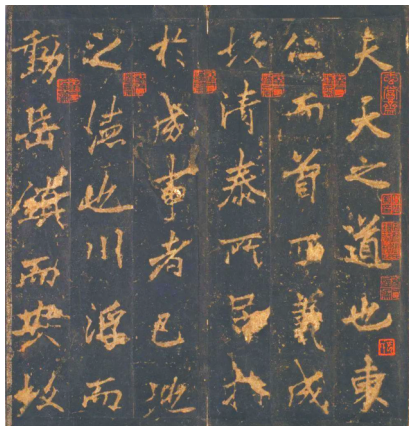 夫天之道也東
仁而首西義成
故清泰所居指
於成事者已地
之德也川浮而
動岳鎮而安故